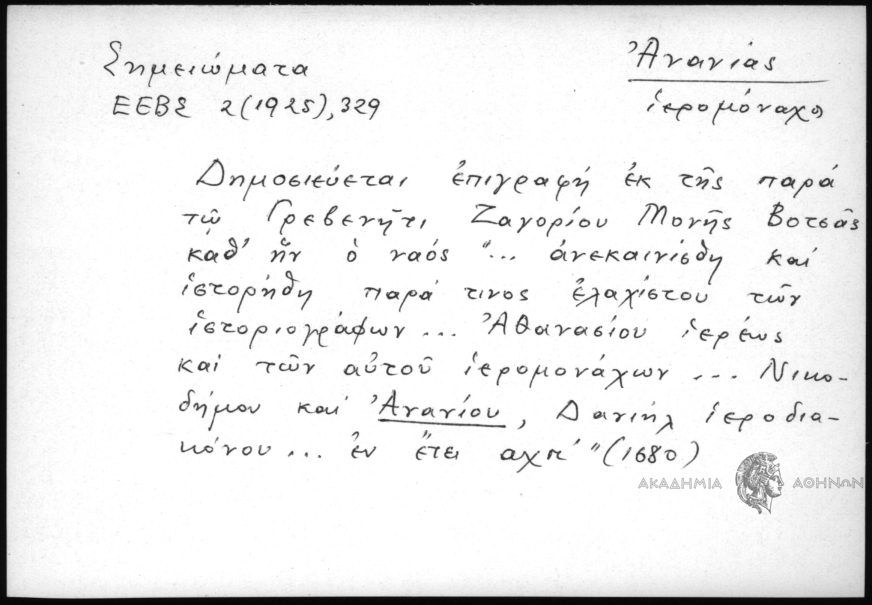 Σημειώματα
ΕΕΒΣ 2(1925), 329
Ἀνανίας
ἱερομόναχο
Δημοσιεύεται ἐπιγραφή ἐκ τῆς παρά
τῷ Γρεβενῆτι Ζαγορίου Μονῆς Βοτσᾶς
καθ' ἥν ὁ ναός "... ἀνεκαινίσθη καί
ἱστορήθη παρά τινος ἐλαχίστου τῶν
ἱστοριογράφων ... Ἀθανασίου ἱερέως
καί τῶν αὐτοῦ ἱερομονάχων ... Νικο-
δήμου καί Ἀνανίου, Δανιήλ ἱεροδια-
κόνου ... ἐν ἔτει αχπ' " (1680)
ΑΚΑΔΗΜΙΑ ΑΘΗΝΩΝ